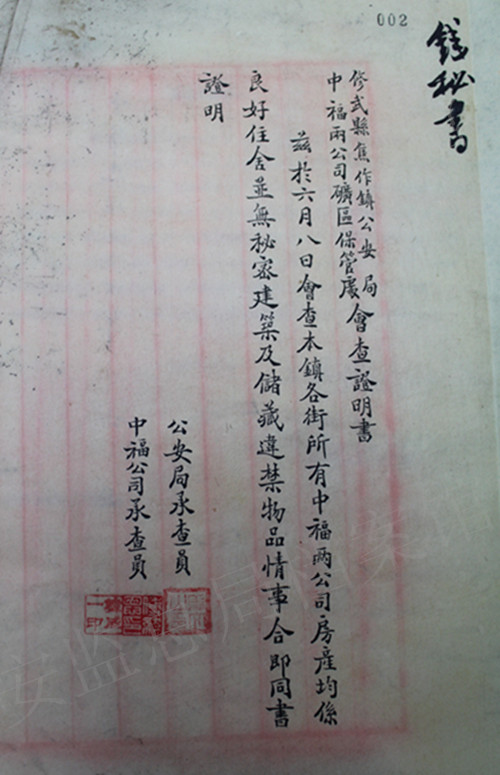 002
錢秘書
修武縣焦作鎮公安局
中福兩公司礦區保管處會查證明書
茲於六月八日會查本鎮各街所有中福兩公司房產均係
良好住舍並無秘密建築及儲藏違禁物品情事合即同書
證明
公安局承查員
中福公司承查員